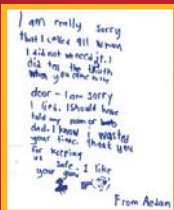 I am really sorry
that I called 911 when
I did not need it. I
did tell the truth
when you came to the
door - I am sorry
I lied. I should have
told my mom or
dad. I know I wasted
your time. thank you
for keeping
us safe. I like
your
From Aedan